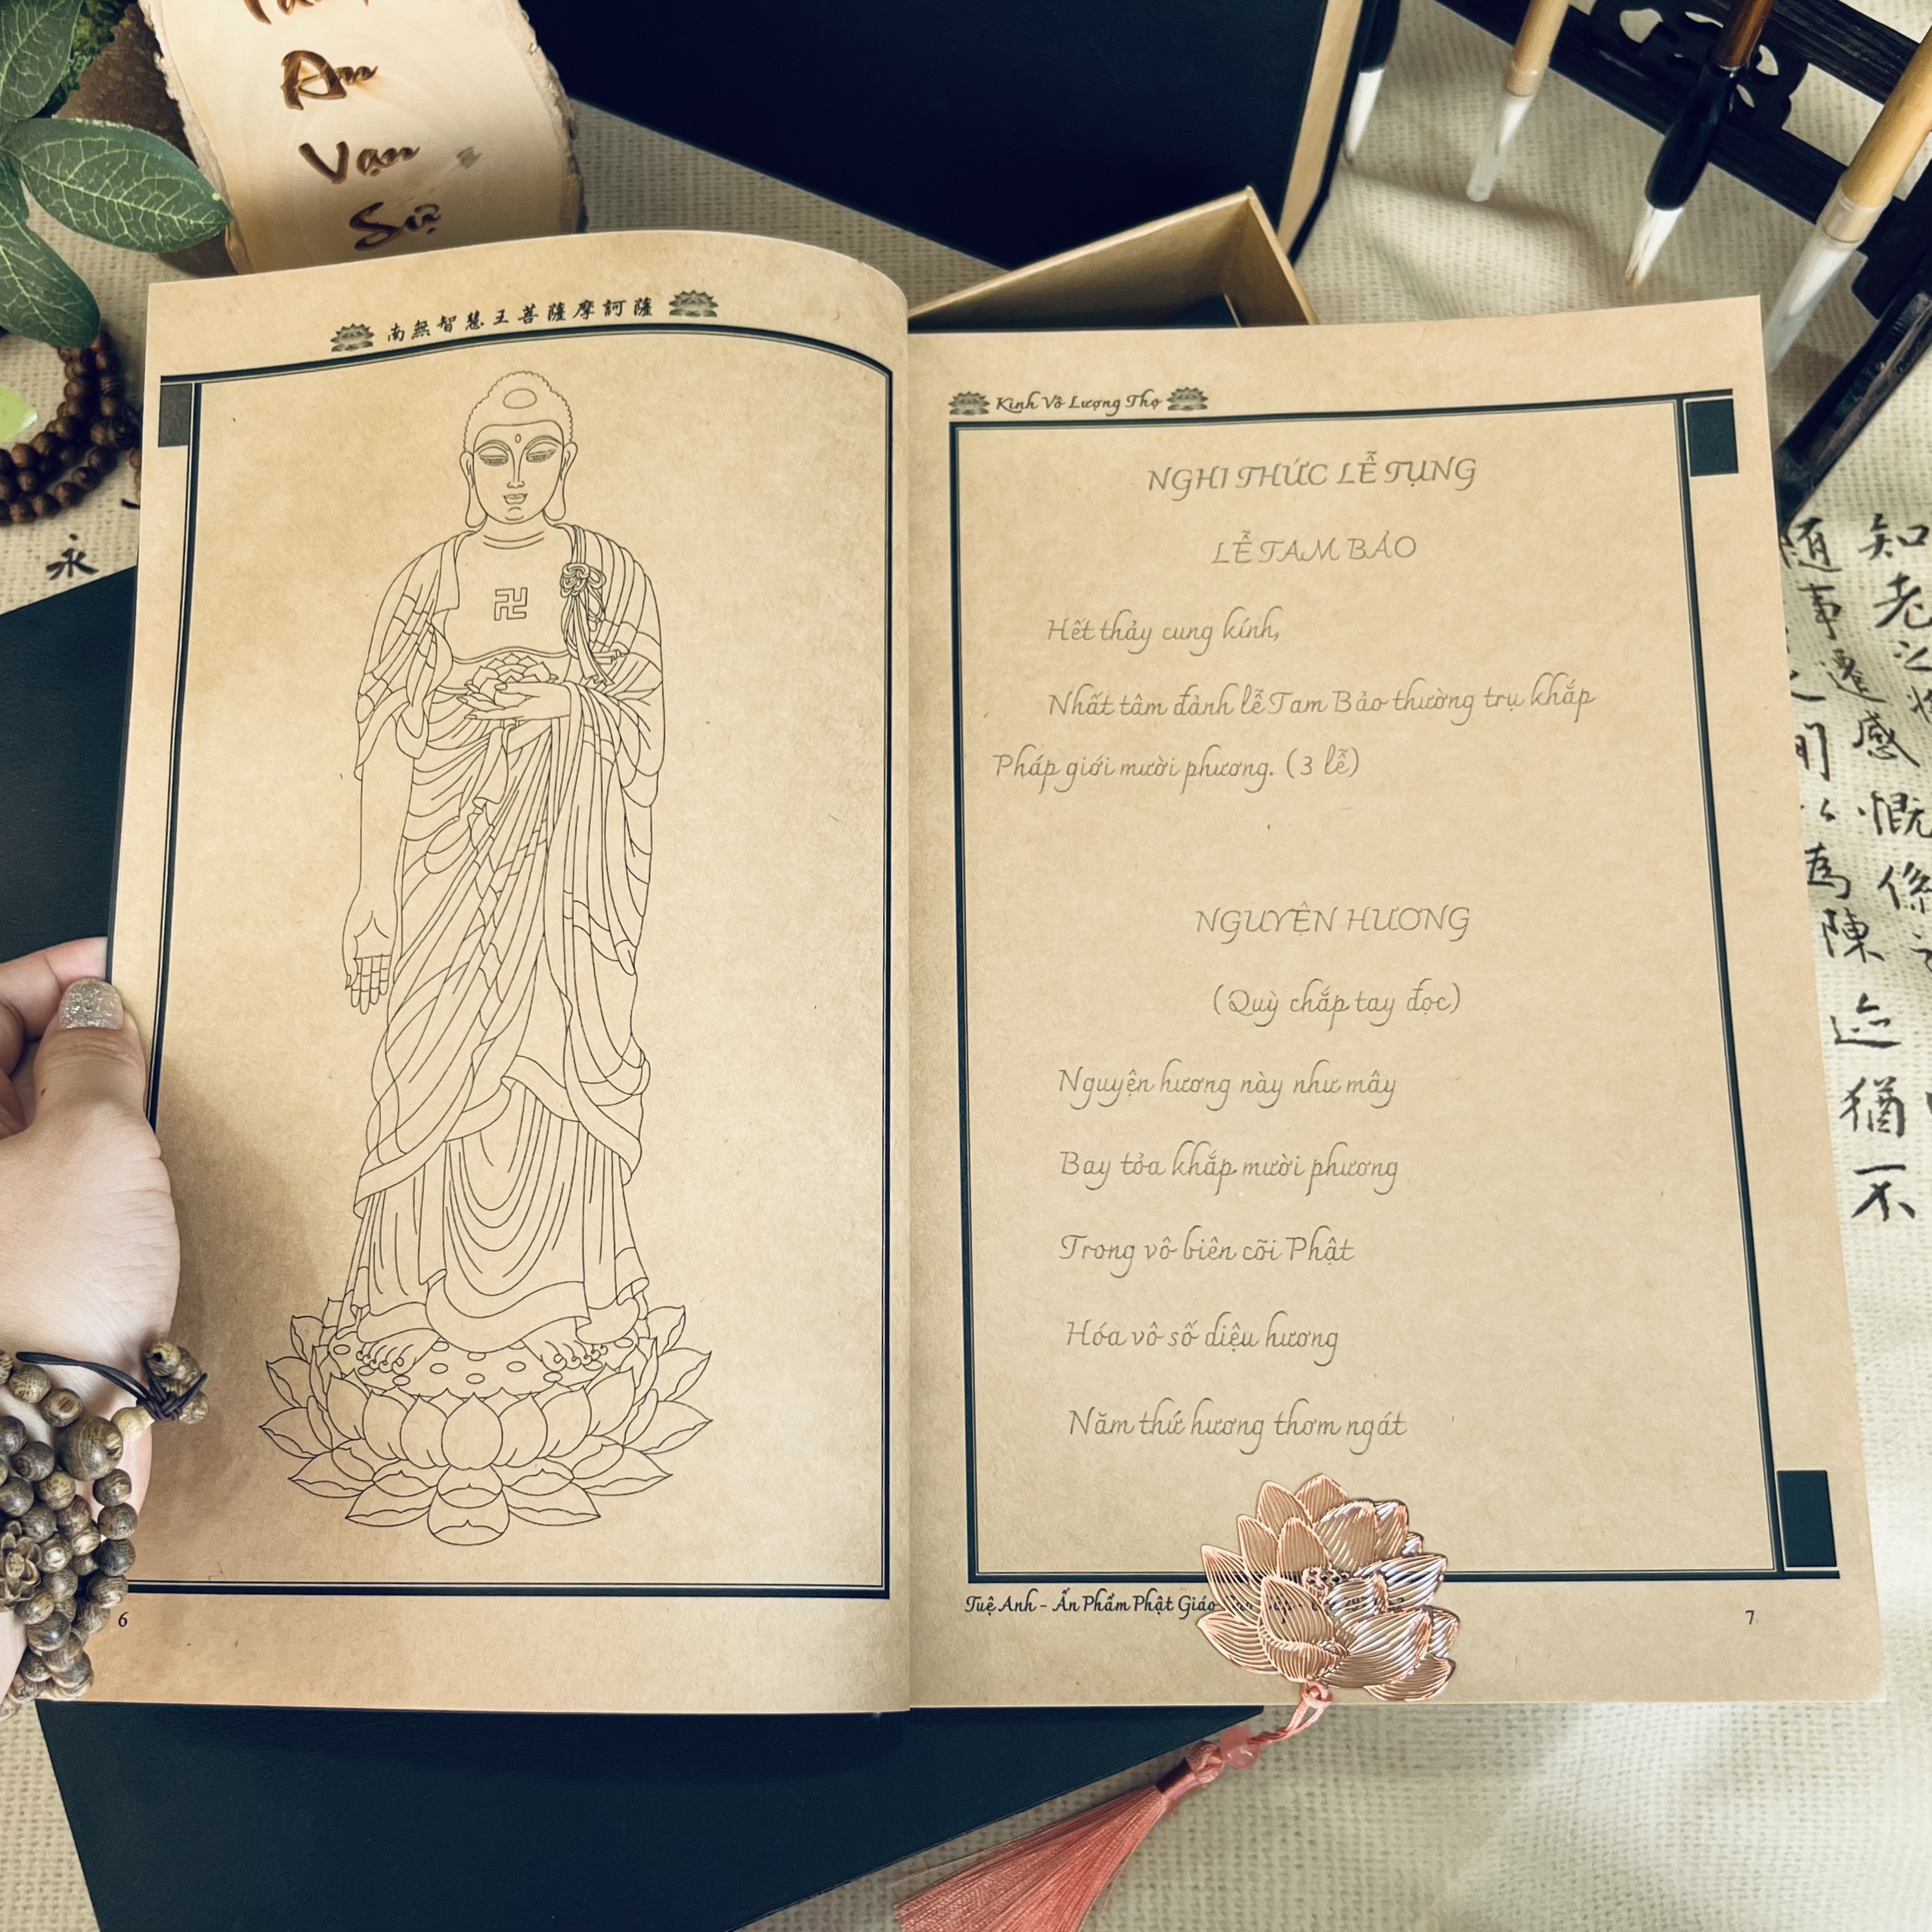 An
Vạn
Sự
南無智慧王菩薩摩訶薩
6
Kinh Vô Lượng Thọ
NGHI THỨC LỄ TỤNG
LỄ TAM BẢO
Hết thảy cung kính,
Nhất tâm đảnh lễ Tam Bảo thường trụ khắp
Pháp giới mười phương. (3 lễ)
NGUYỆN HƯƠNG
(Quỳ chắp tay đọc)
Nguyện hương này như mây
Bay tỏa khắp mười phương
Trong vô biên cõi Phật
Hóa vô số diệu hương
Năm thứ hương thơm ngát
Tuệ Anh - Ấn Phẩm Phật Giáo
7
永
知老之將
隨事遷感慨係之
間以為陳迹猶不